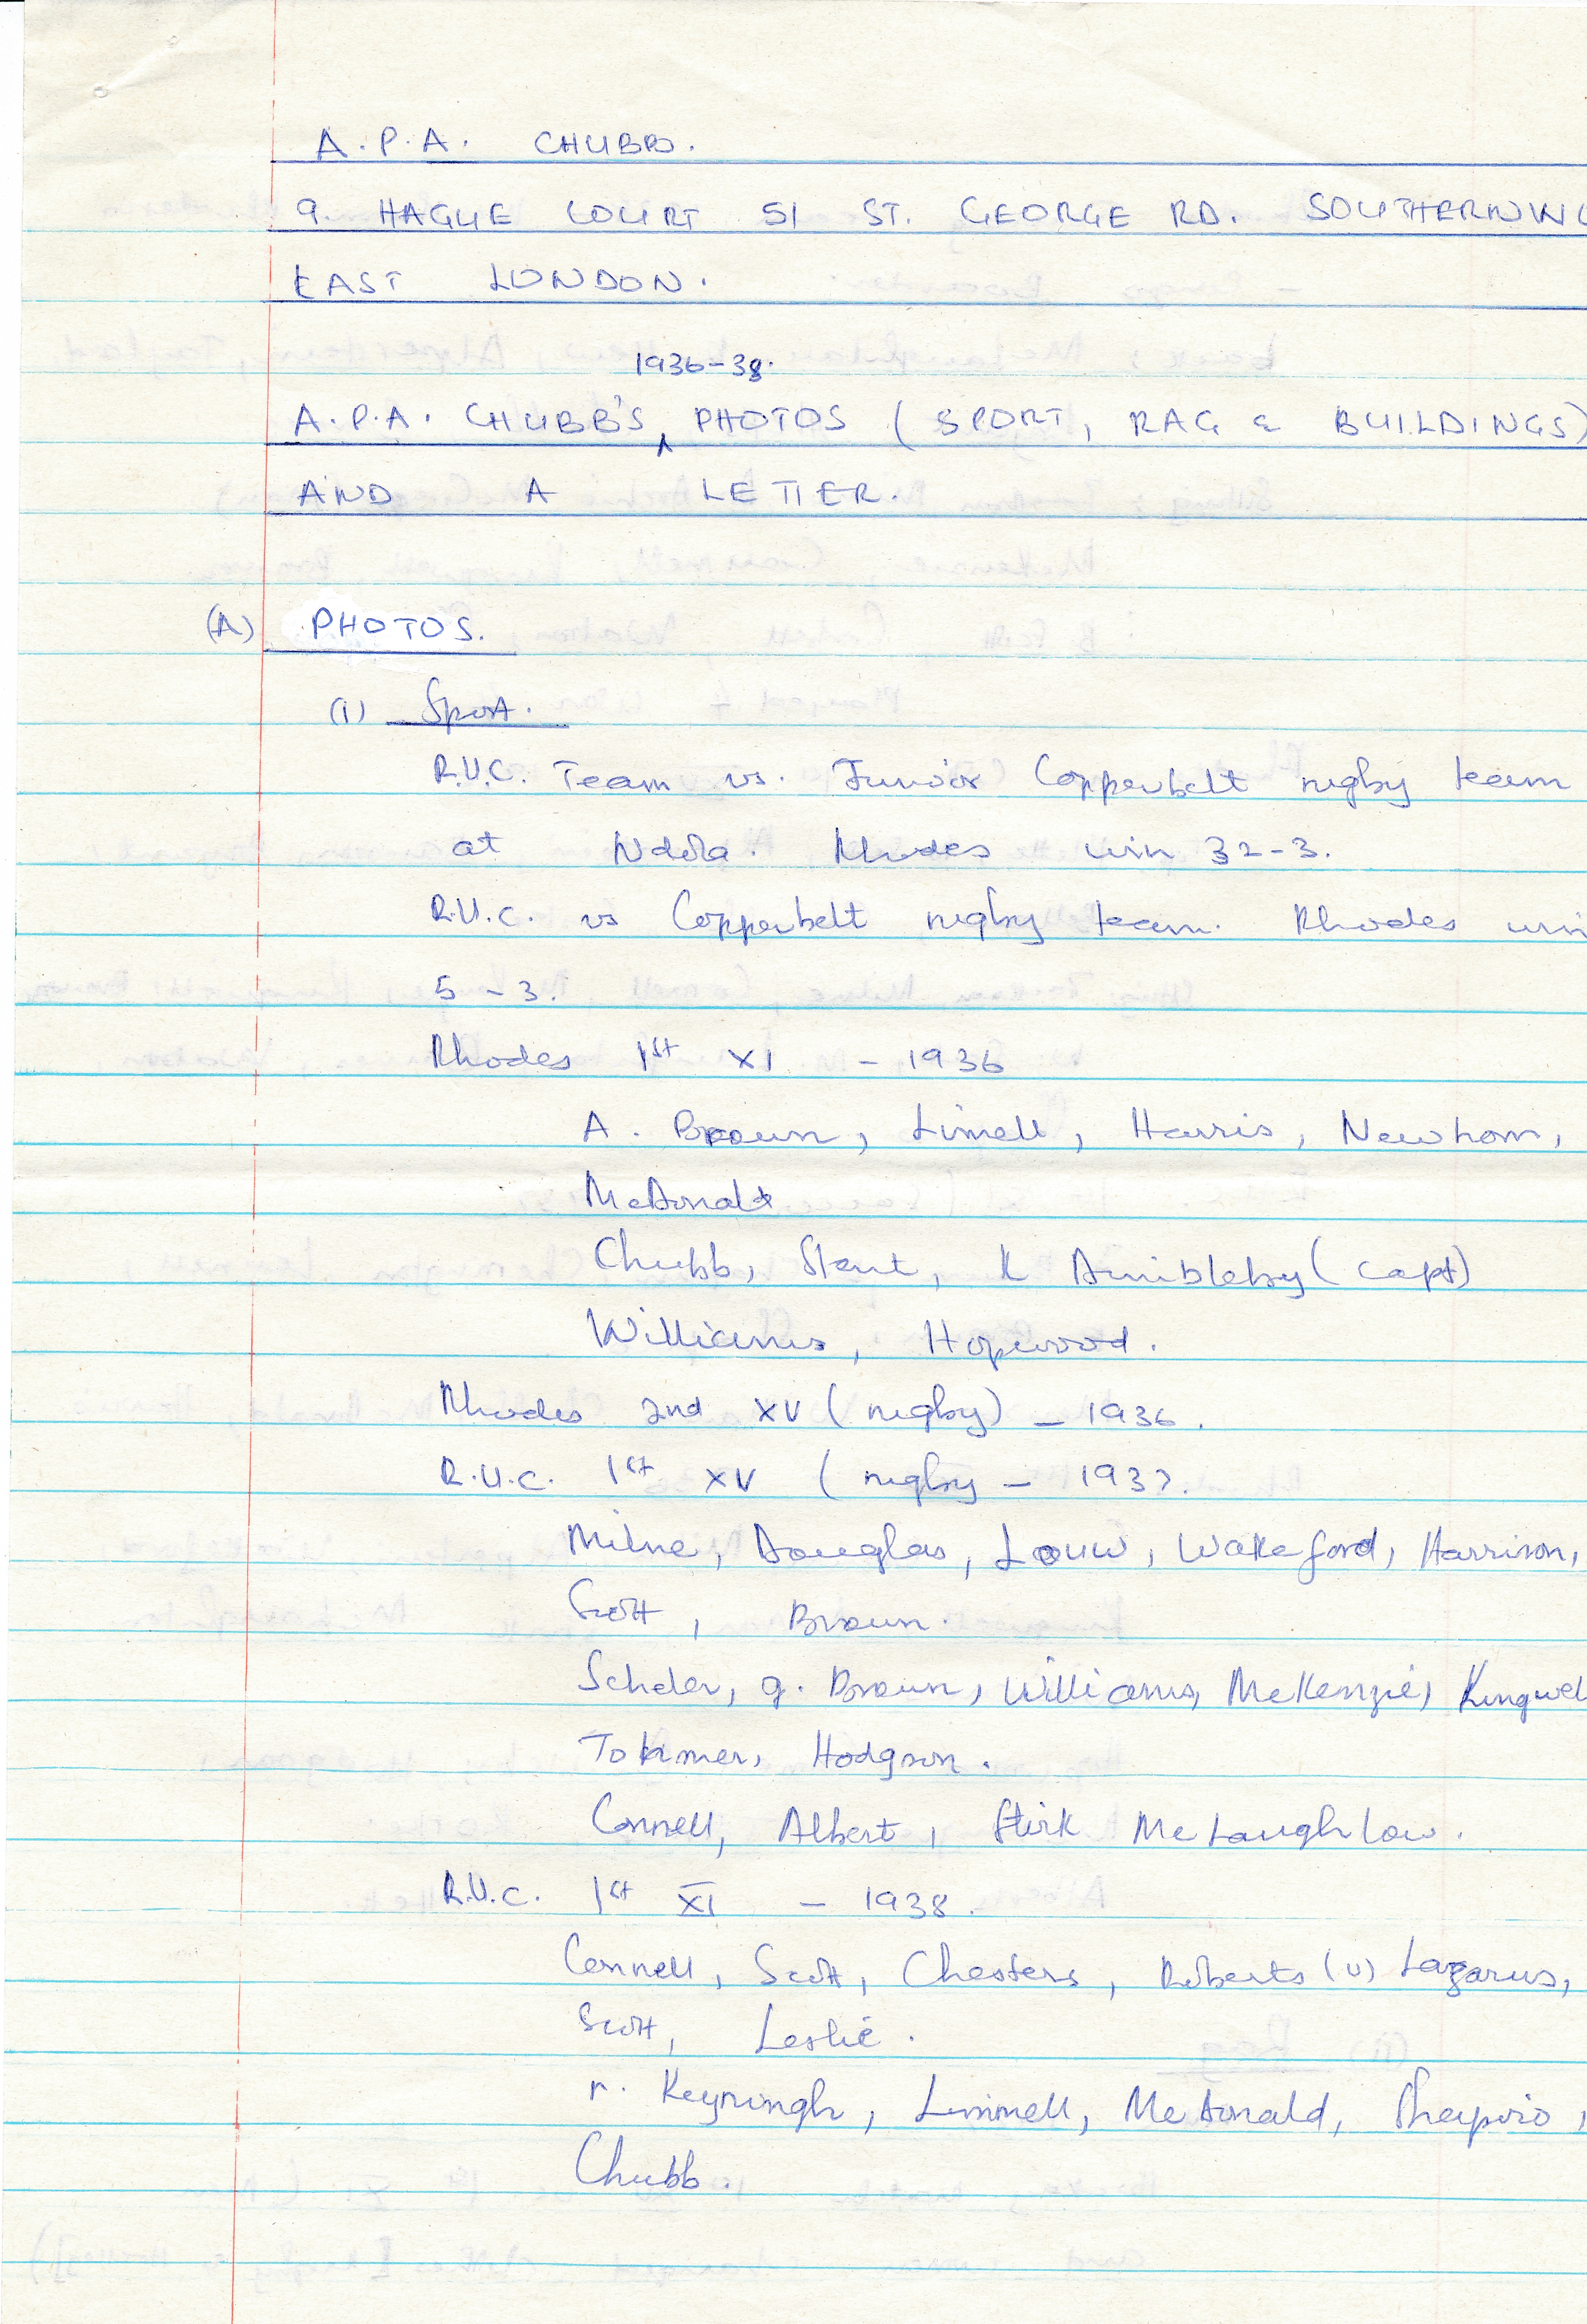 A.P.A. CHUBB.
9. HAGUE COURT 51 ST. GEORGE RD. SOUTHERNWO
EAST LONDON.
1936-38.
A.P.A. CHUBB'S ‸ PHOTOS (SPORT, RAG & BUILDINGS)
AND A LETTER.
(A) PHOTOS.
(i) Sport.
R.U.C. Team vs. Junior Copperbelt rugby team
at Ndola. Rhodes win 32-3.
R.U.C. vs Copperbelt rugby team. Rhodes win
5-3.
Rhodes 1st XI - 1936
A. Brown, Linnell, Harris, Newhom,
McDonald
Chubb, Stent, K Dimbleby (capt)
Williams, Hopwood.
Rhodes 2nd XV (rugby) - 1936.
R.U.C. 1st XV (rugby - 1937.
Milne, Douglas, Louw, Wakeford, Harrison,
Scott, Brown.
Scheler, g. Brown, Williams, McKenzie, Kingwel
Hodgson.
Connell, Albert, Stirk McLaughlow.
R.U.C. 1st XI - 1938.
Connell, Scott, Chesters, Roberts (U) Lazarus,
Scott, Leslie.
Linnell, McDonald, Shapiro,
Chubb.